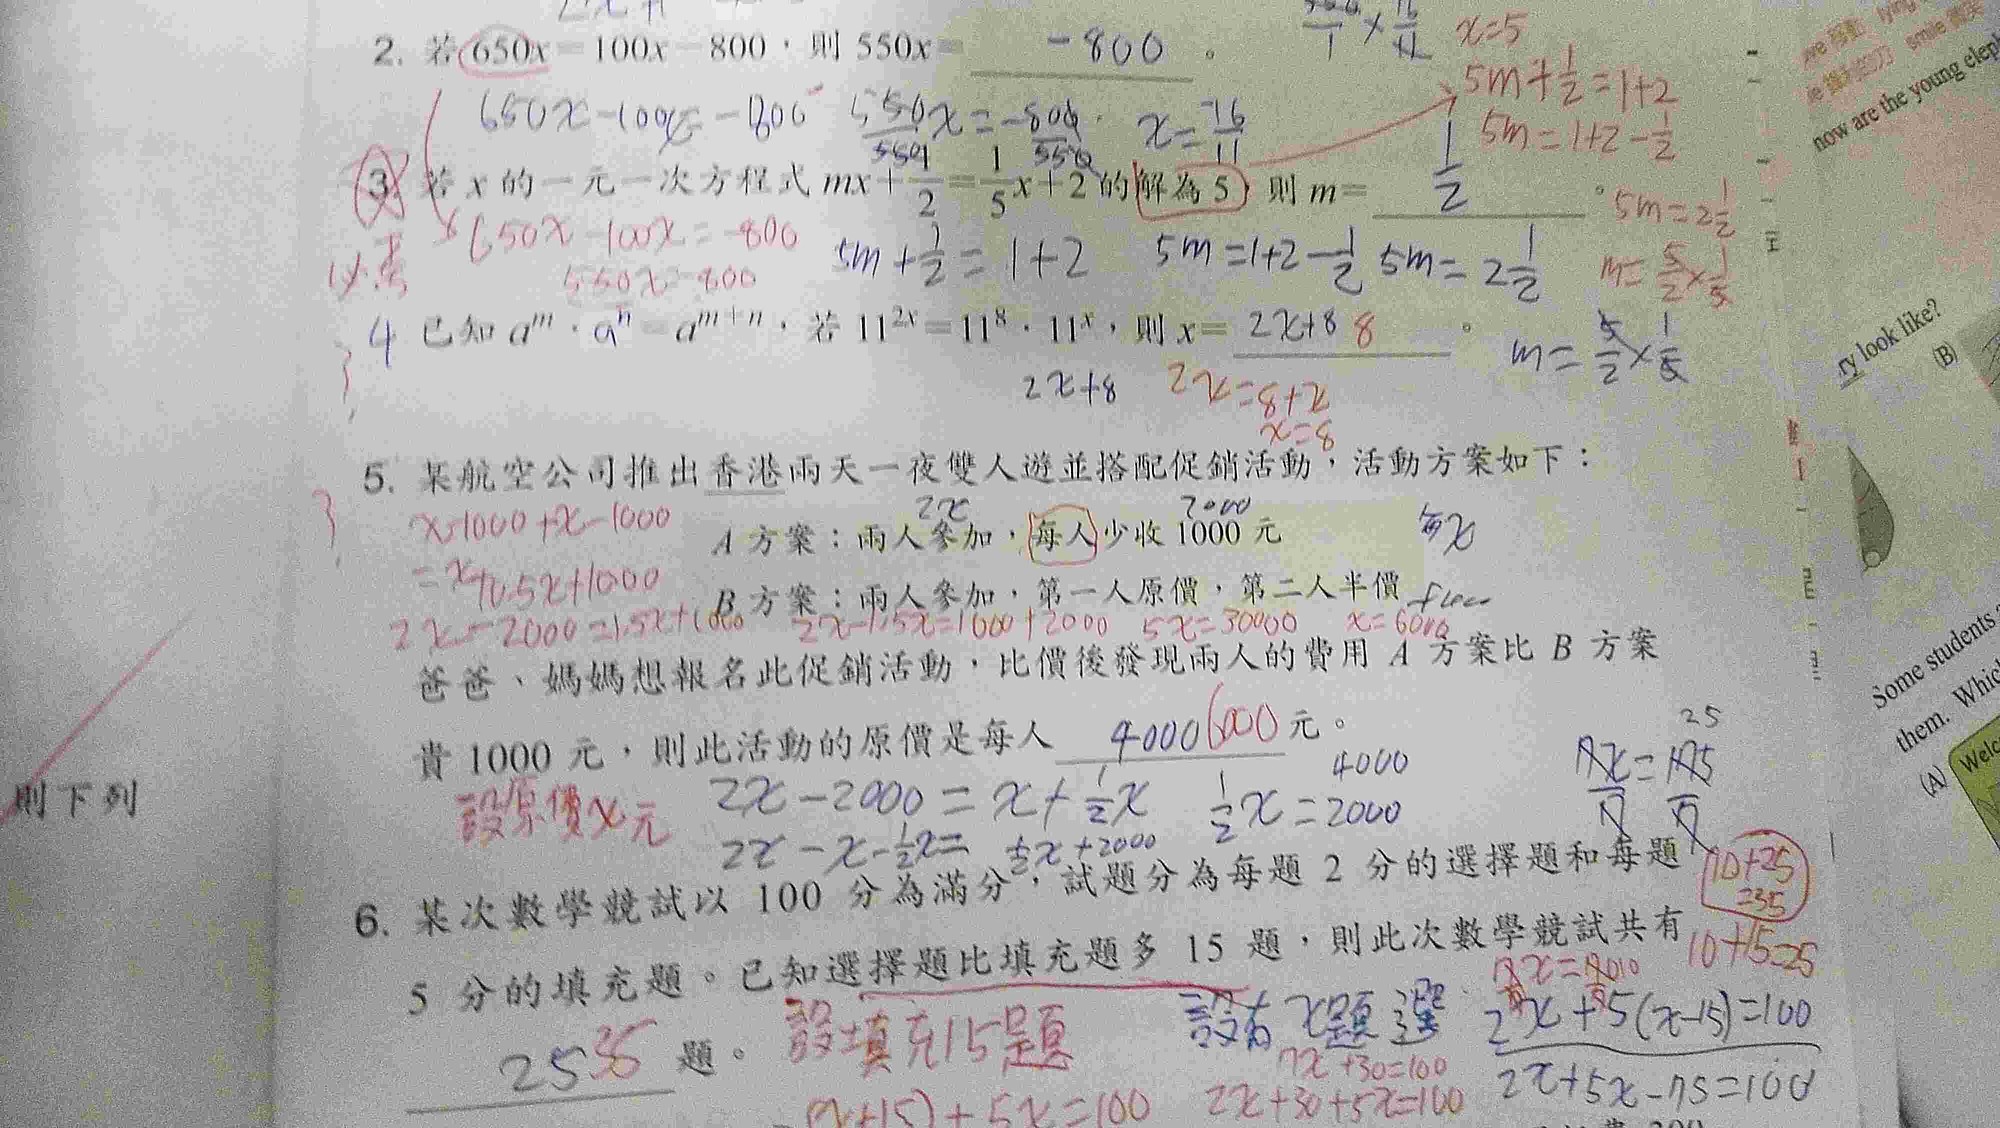 2. 若 650x=100x-800，則 550x= -800 。
x=5
5m+1/2=1+2
650x-100x=-800 550x/550=-800/550 x=-16/11
5m=1+2-1/2
3 若 x 的一元一次方程式 mx+1/2=1/5x+2 的解為 5，則 m= 1/2 。
5m=2 1/2
必考
650x-100x=-800
550x=-800
5m+1/2=1+2 5m=1+2-1/2 5m=2 1/2
m=5/2×1/5
4 已知 a^m·a^n=a^(m+n)，若 11^(2x)=11^8·11^x，則 x= 2x+8 8 。
m=5/2×1/5
2x+8 2x=8+x
x=8
5. 某航空公司推出香港兩天一夜雙人遊並搭配促銷活動，活動方案如下：
x-1000+x-1000
2x 2000
A 方案：兩人參加，每人少收 1000 元
每x
=x+0.5x+1000
B 方案：兩人參加，第一人原價，第二人半價
2x-2000=1.5x+1000 2x-1.5x=1000+2000 5x=30000 x=6000
爸爸、媽媽想報名此促銷活動，比價後發現兩人的費用 A 方案比 B 方案
貴 1000 元，則此活動的原價是每人 4000 6000 元。
25
4000
設原價x元 2x-2000=x+1/2x 1/2x=2000
2x-x-1/2x= 1/2x+2000
則下列
6. 某次數學競試以 100 分為滿分，試題分為每題 2 分的選擇題和每題
10+25
=35
5 分的填充題。已知選擇題比填充題多 15 題，則此次數學競試共有
10+15=25
25 35 題。
設填充15題 設有x題選 2x+5(x-15)=100
7x+30=100
2x+5x-75=100
(x+15)+5x=100 2x+30+5x=100
now are the young eleph
ry look like?
(B)
Some students
them. Which
(A) Welc